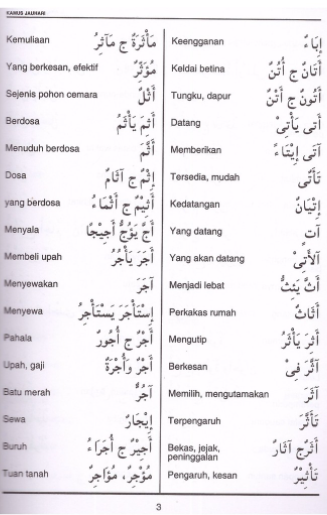 KAMUS JAUHARI
Keengganan إِبَاءٌ
Keldai betina أَتَانٌ ج أُتُنٌ
Tungku, dapur أَتُونٌ ج أُتُنٌ
Datang أَتَى يَأْتِىْ
Memberikan آتَى إِيْتَاءً
Tersedia, mudah تَأَتَّى
Kedatangan إِتْيَانٌ
Yang datang آتٍ
Yang akan datang اَلْآتِىْ
Menjadi lebat أَثَّ يَئِثُّ
Perkakas rumah أَثَاثٌ
Mengutip أَثَرَ يَأْثُرُ
Berkesan أَثَّرَ فِىْ
Memilih, mengutamakan آثَرَ
Terpengaruh تَأَثَّرَ
Bekas, jejak, أَثَرٌ ج آثَارٌ
peninggalan
Pengaruh, kesan تَأْثِيْرٌ
Kemuliaan مَأْثَرَةٌ ج مَآثِرُ
Yang berkesan, efektif مُؤَثِّرٌ
Sejenis pohon cemara أَثْلٌ
Berdosa أَثِمَ يَأْثَمُ
Menuduh berdosa أَثَّمَ
Dosa إِثْمٌ ج آثَامٌ
yang berdosa أَثِيْمٌ ج أَثْمَاءُ
Menyala أَجَّ يَؤُجُّ أَجِيْجًا
Membeli upah أَجَرَ يَأْجُرُ
Menyewakan آجَرَ
Menyewa إِسْتَأْجَرَ يَسْتَأْجِرُ
Pahala أَجْرٌ ج أُجُوْرٌ
Upah, gaji أَجْرٌ وَأُجْرَةٌ
Batu merah آجُرٌّ
Sewa إِيْجَارٌ
Buruh أَجِيْرٌ ج أُجَرَاءُ
Tuan tanah مُؤْجِرٌ، مُؤَاجِرٌ
3